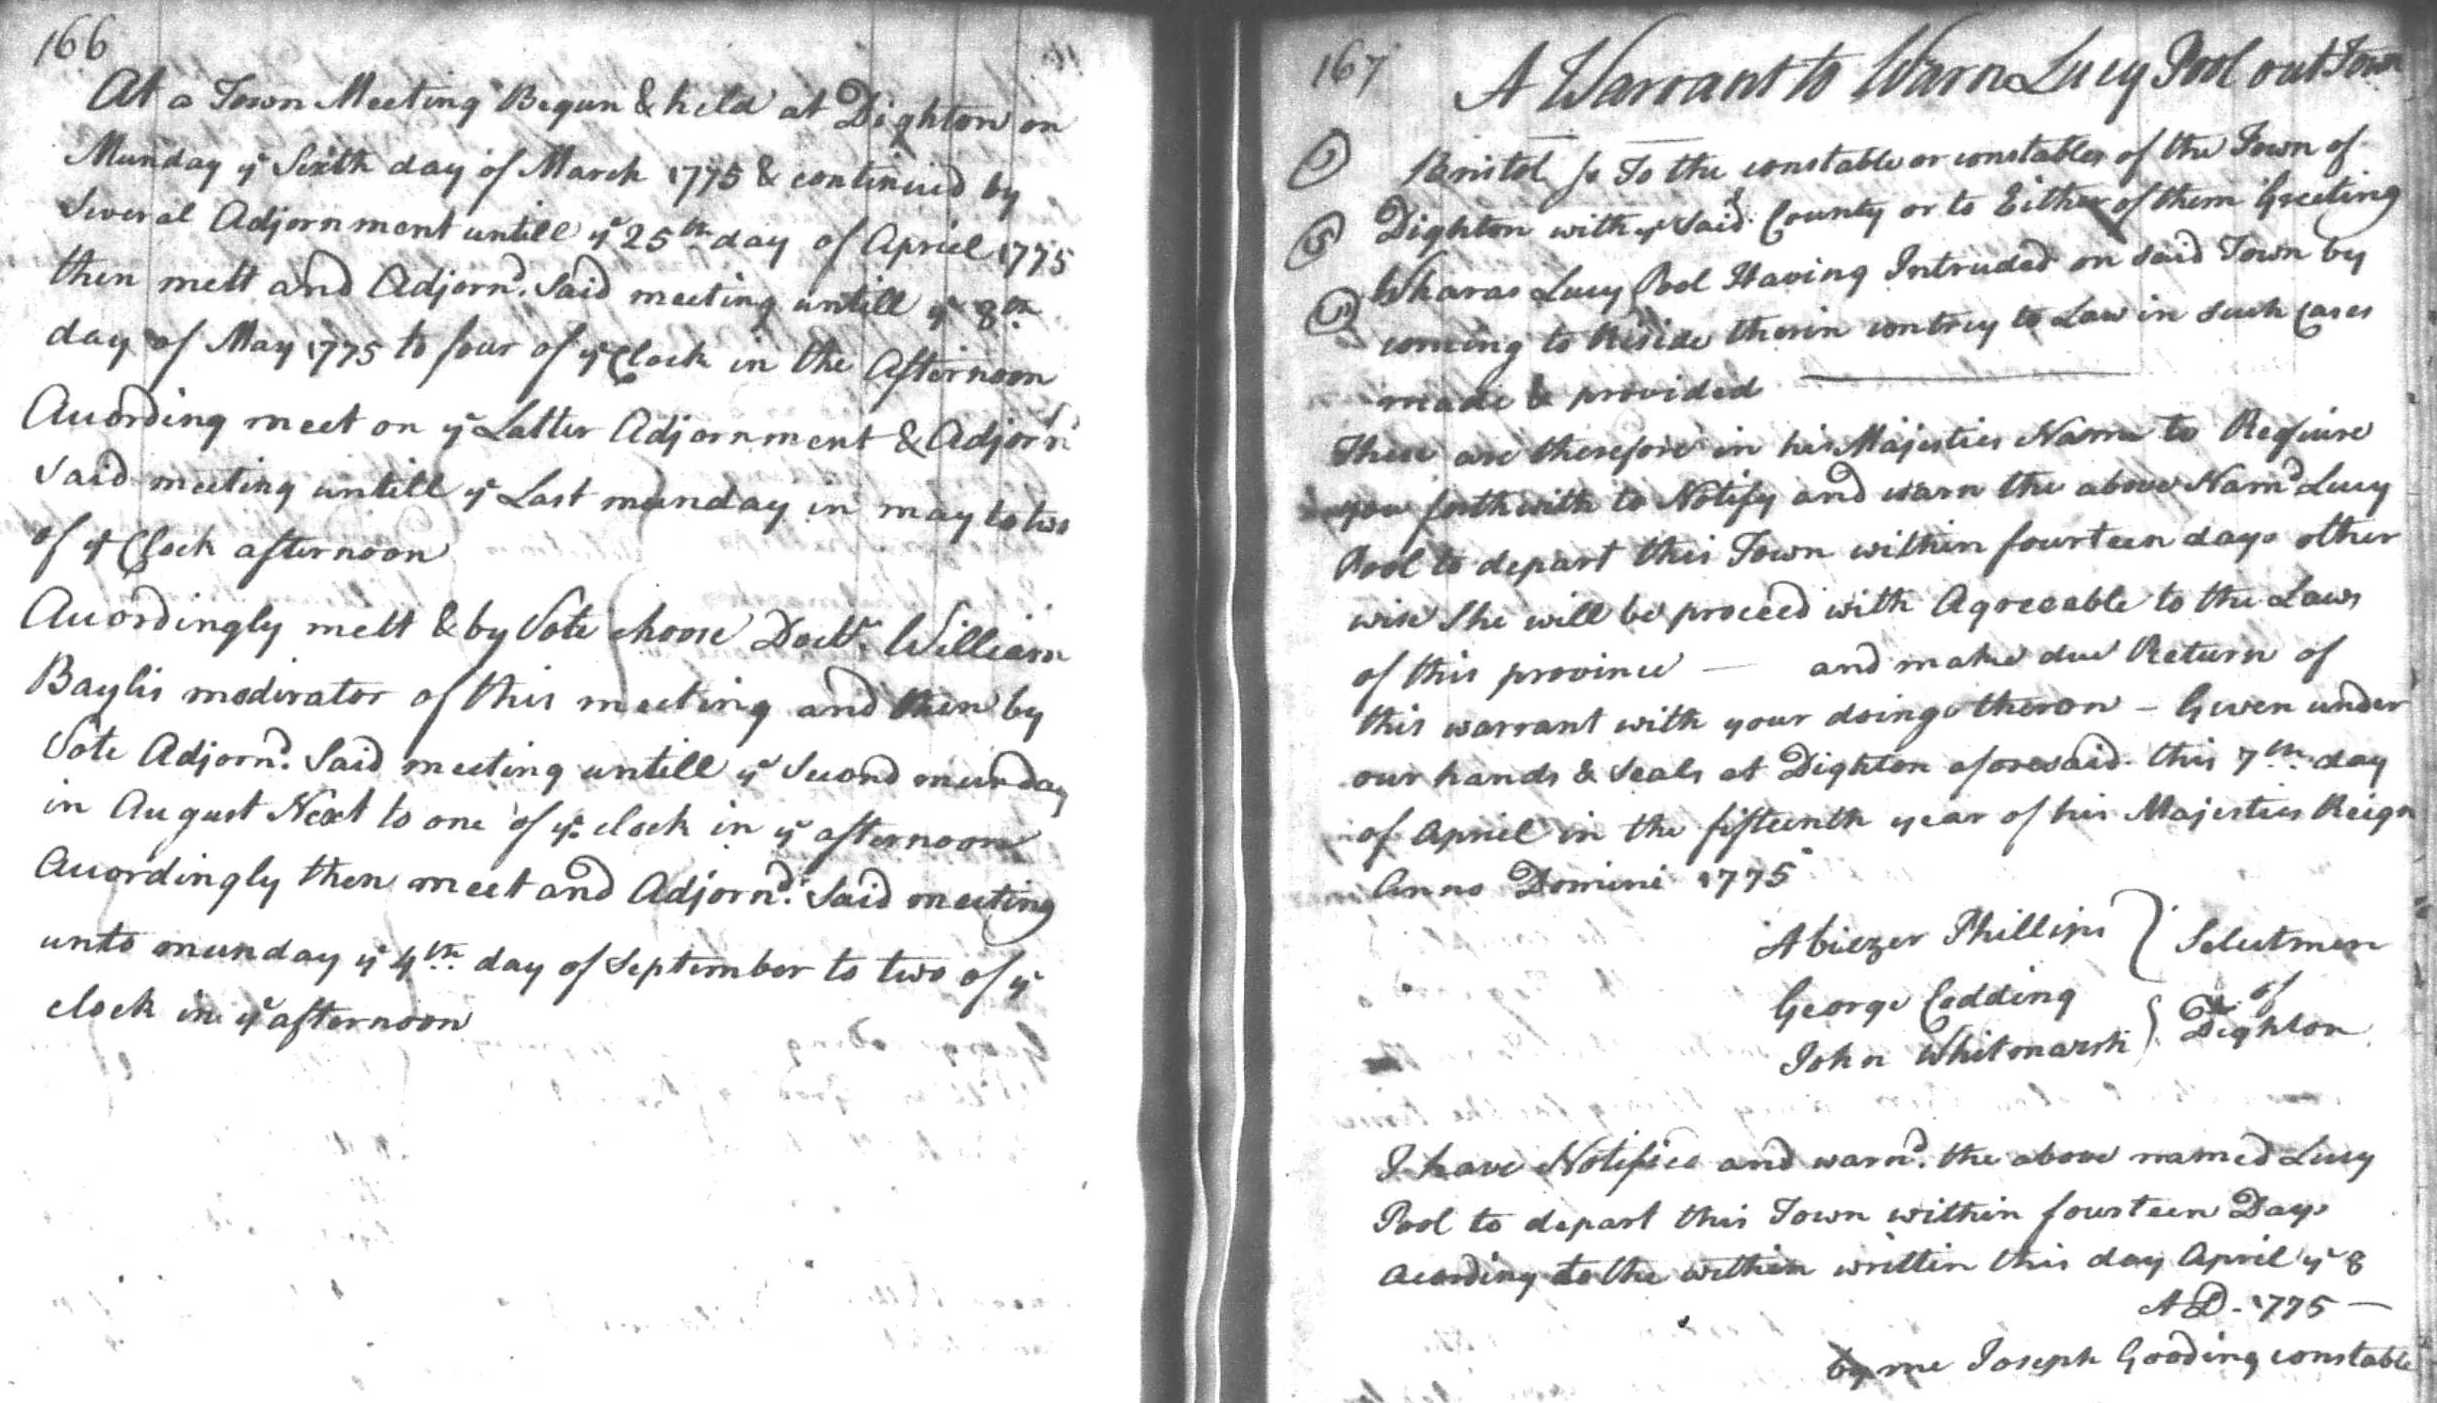 166
At a Town Meeting Begun & held at Dighton on
Munday ye Sixth day of March 1775 & continued by
Several Adjornment untill ye 25th day of Apriel 1775
then mett and Adjornd. Said meeting untill ye 8th
day of May 1775 to four of ye Clock in the Afternoon
Acording meet on ye Latter Adjornment & Adjornd
Said meeting untill ye Last munday in may to two
of ye Clock afternoon
Acordingly mett & by Vote choose Doctr. William
Baylis modirator of this meeting and then by
Vote Adjornd. Said meeting untill ye Second munday
in August Next to one of ye clock in ye afternoon
Acordingly then meet and Adjornd. Said meeting
unto munday ye 4th day of September to two of ye
clock in ye afternoon
167
A Warrant to Warn Lucy Pool out Town
Bristol ss To the constable or constables of the Town of
Dighton with ye Said County or to Either of them Greeting
Wharas Lucy Pool Having Intruded on said Town by
coming to Reside therin contrey to Law in such Cases
made & provided
These are therefore in his Majesties Name to Require
you forthwith to Notify and warn the above Namd Lucy
Pool to depart this Town within fourteen days other
wise She will be proceed with Agreeable to the Laws
of this province — and make due Return of
this warrant with your doings theron – Given under
our hands & Seals at Dighton aforesaid this 7th day
of April in the fifteenth year of his Majesties Reign
Anno Domini 1775
Abiezer Phillips } Selectmen
George Codding of
John Whitmarsh } Dighton
I have Notified and warnd. the above named Lucy
Pool to depart this Town within fourteen Days
Acording to the within writtin this day April ye 8
AD - 1775 —
by me Joseph Gooding constable